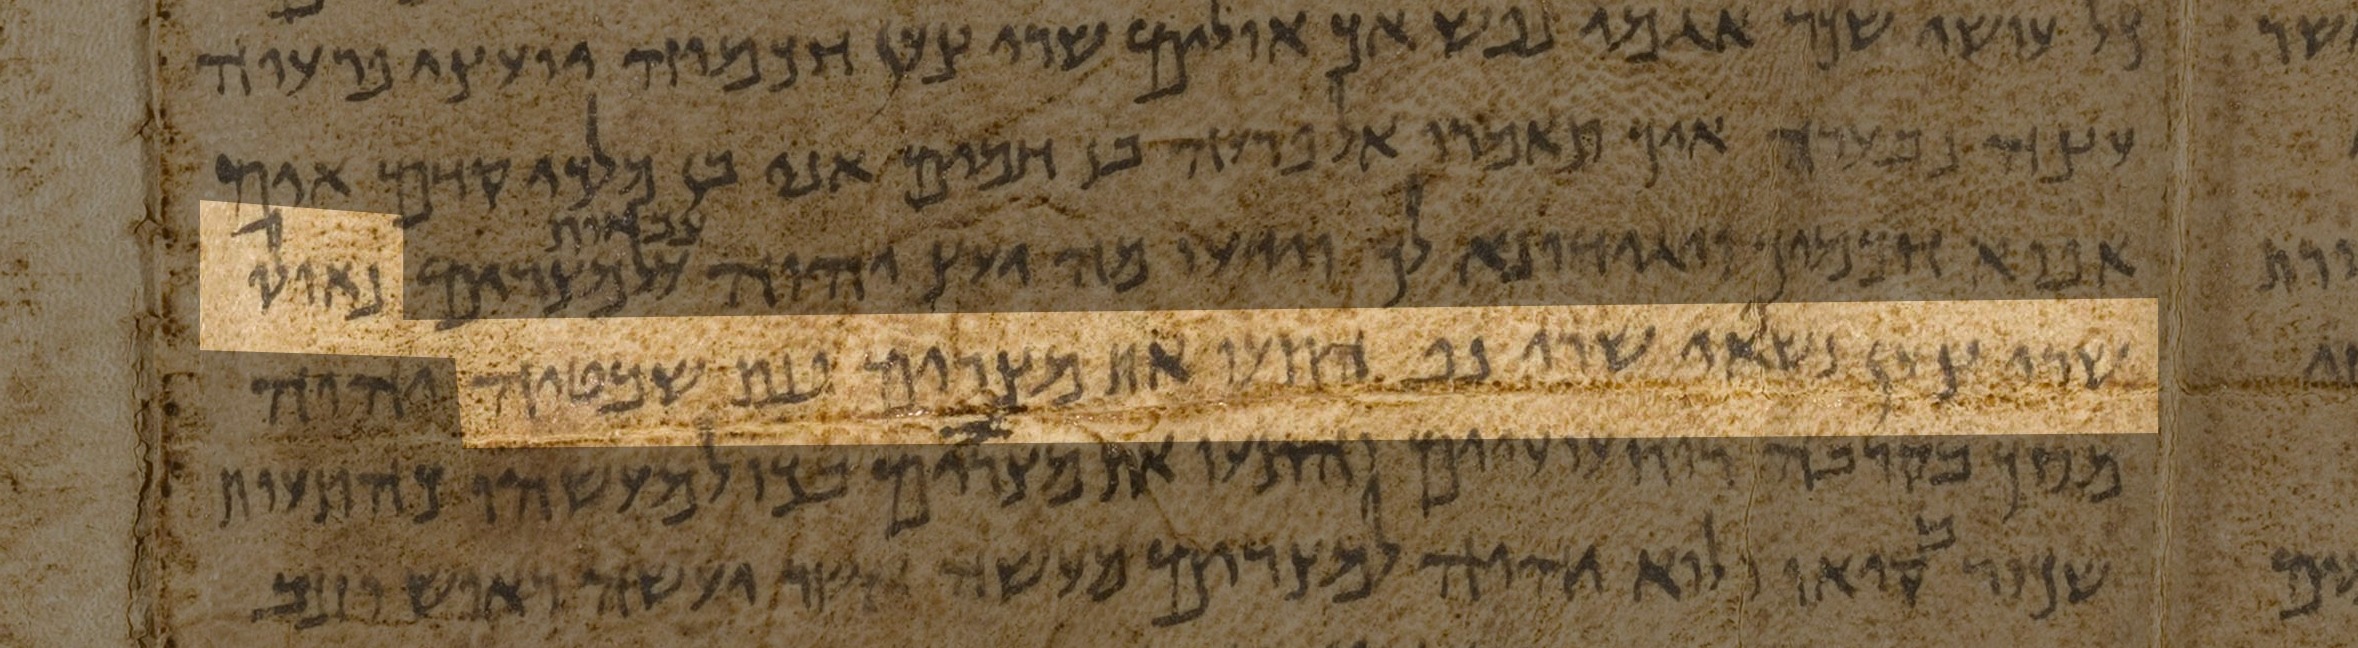 כל עושי שכר אגמי נפש אך אוילים שרי צען חכמיה יועצי פרעוה
עצה נבערה איך תאמרו אל פרעה בן חכמים אני בן מלכי קדם אים
צבאות
אפוא חכמיך ויגידו נא לך וידעו מה יעץ יהוה על מצרים נאולו
שרי צען נשאו שרי נף התעו את מצרים פנת שבטיה יהוה
מסך בקרבה רוח עועיים והתעו את מצרים בכול מעשהו כהתעות
שכור בקיאו ולוא יהיה למצרים מעשה אשר יעשה רואש וזנב